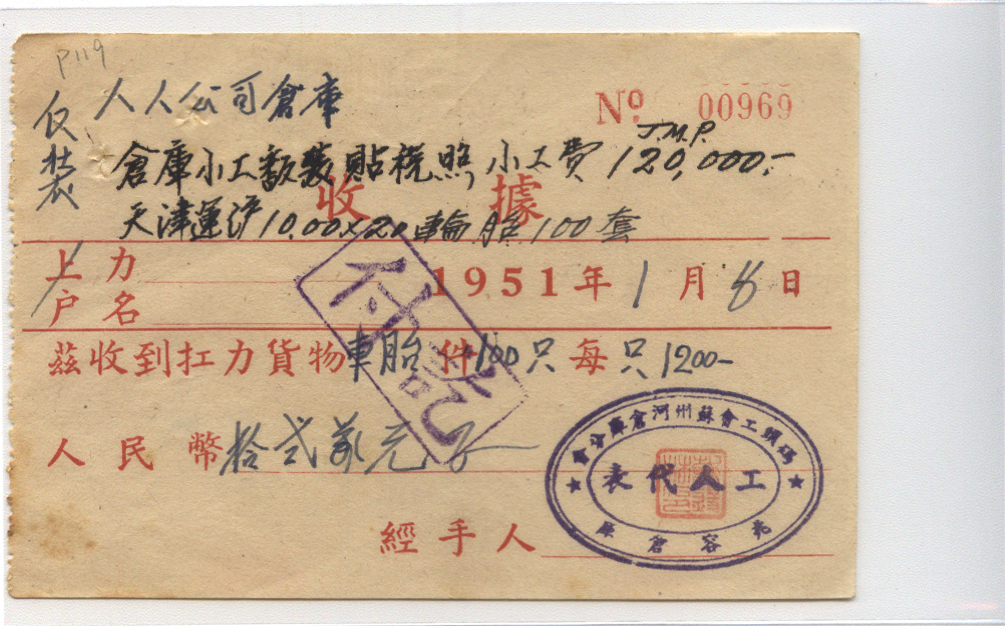 P119
仅装
人人公司倉庫
Nº 00969
J.M.P.
倉庫小工翻裝貼税照 小工費 120,000.-
收據
天津運滬 10.00x20 輪胎 100套
上力
户名
1951年1月8日
付訖
茲收到扛力貨物車胎件100只每只1200-
人民幣拾弍萬元正
碼頭工會蘇州河倉庫分會
工人代表
兆容倉庫
經手人